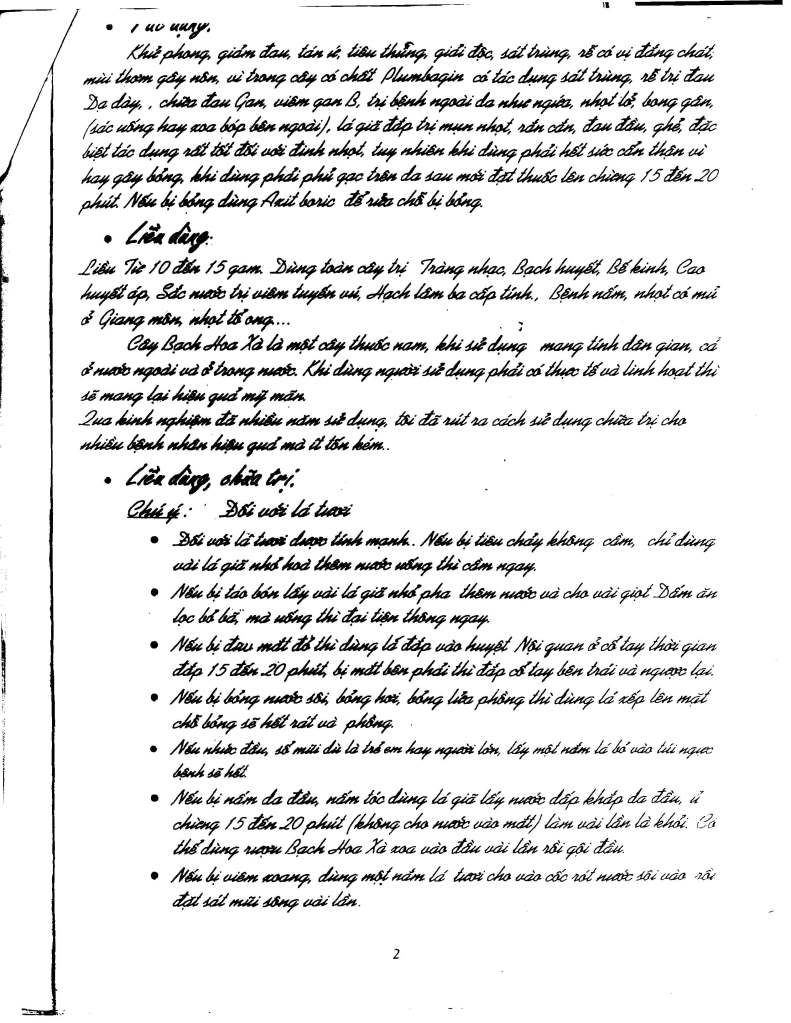 • Tác dụng.
Khử phong, giảm đau, tán ứ, tiêu thũng, giải độc, sát trùng, rễ có vị đắng chát,
mùi thơm gây nôn, vì trong cây có chất Plumbagin có tác dụng sát trùng, rễ trị đau
Dạ dày, , chữa đau Gan, viêm gan B, trị bệnh ngoài da như ngứa, nhọt lở, bong gân,
(sắc uống hay xoa bóp bên ngoài), lá giã đắp trị mụn nhọt, rắn cắn, đau đầu, ghẻ, đặc
biệt tác dụng rất tốt đối với đinh nhọt, tuy nhiên khi dùng phải hết sức cẩn thận vì
hay gây bỏng, khi dùng phải phủ gạc trên da sau mới đặt thuốc lên chừng 15 đến 20
phút. Nếu bị bỏng dùng Axit boric để rửa chỗ bị bỏng.
• Liều dùng:
Liều Từ 10 đến 15 gam. Dùng toàn cây trị Tràng nhạc, Bạch huyết, Bế kinh, Cao
huyết áp, Sắc nước trị viêm tuyến vú, Hạch lâm ba cấp tính., Bệnh nấm, nhọt có mủ
ở Giang môn, nhọt tổ ong....
Cây Bạch Hoa Xà là một cây thuốc nam, khi sử dụng mang tính dân gian, cả
ở nước ngoài và ở trong nước. Khi dùng người sử dụng phải có thực tế và linh hoạt thì
sẽ mang lại hiệu quả mỹ mãn.
Qua kinh nghiệm đã nhiều năm sử dụng, tôi đã rút ra cách sử dụng chữa trị cho
nhiều bệnh nhân hiệu quả mà ít tốn kém..
• Liều dùng, chữa trị.
Chú ý: Đối với lá tươi
• Đối với lá tươi dược tính mạnh.. Nếu bị tiêu chảy không cầm, chỉ dùng
vài lá giã nhỏ hoà thêm nước uống thì cầm ngay.
• Nếu bị táo bón lấy vài lá giã nhỏ pha thêm nước và cho vài giọt Dấm ăn
lọc bỏ bã, mà uống thì đại tiện thông ngay.
• Nếu bị đau mắt đỏ thì dùng lá đắp vào huyệt Nội quan ở cổ tay thời gian
đắp 15 đến 20 phút, bị mắt bên phải thì đắp cổ tay bên trái và ngược lại.
• Nếu bị bỏng nước sôi, bỏng hơi, bỏng lửa phồng thì dùng lá xếp lên mặt
chỗ bỏng sẽ hết rát và phồng.
• Nếu nhức đầu, sổ mũi dù là trẻ em hay người lớn, lấy một nắm lá bỏ vào túi ngực
bệnh sẽ hết.
• Nếu bị nấm da đầu, nấm tóc dùng lá giã lấy nước dấp khắp da đầu, ủ
chừng 15 đến 20 phút (không cho nước vào mắt) làm vài lần là khỏi. Có
thể dùng rượu Bạch Hoa Xà xoa vào đầu vài lần rồi gội đầu.
• Nếu bị viêm xoang, dùng một nắm lá tươi cho vào cốc rót nước sôi vào rồi
đặt sát mũi sông vài lần.
2